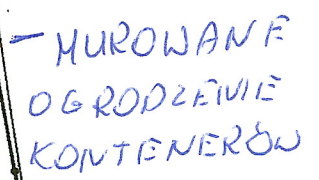 - MUROWANE
OGRODZENIE
KONTENERÓW